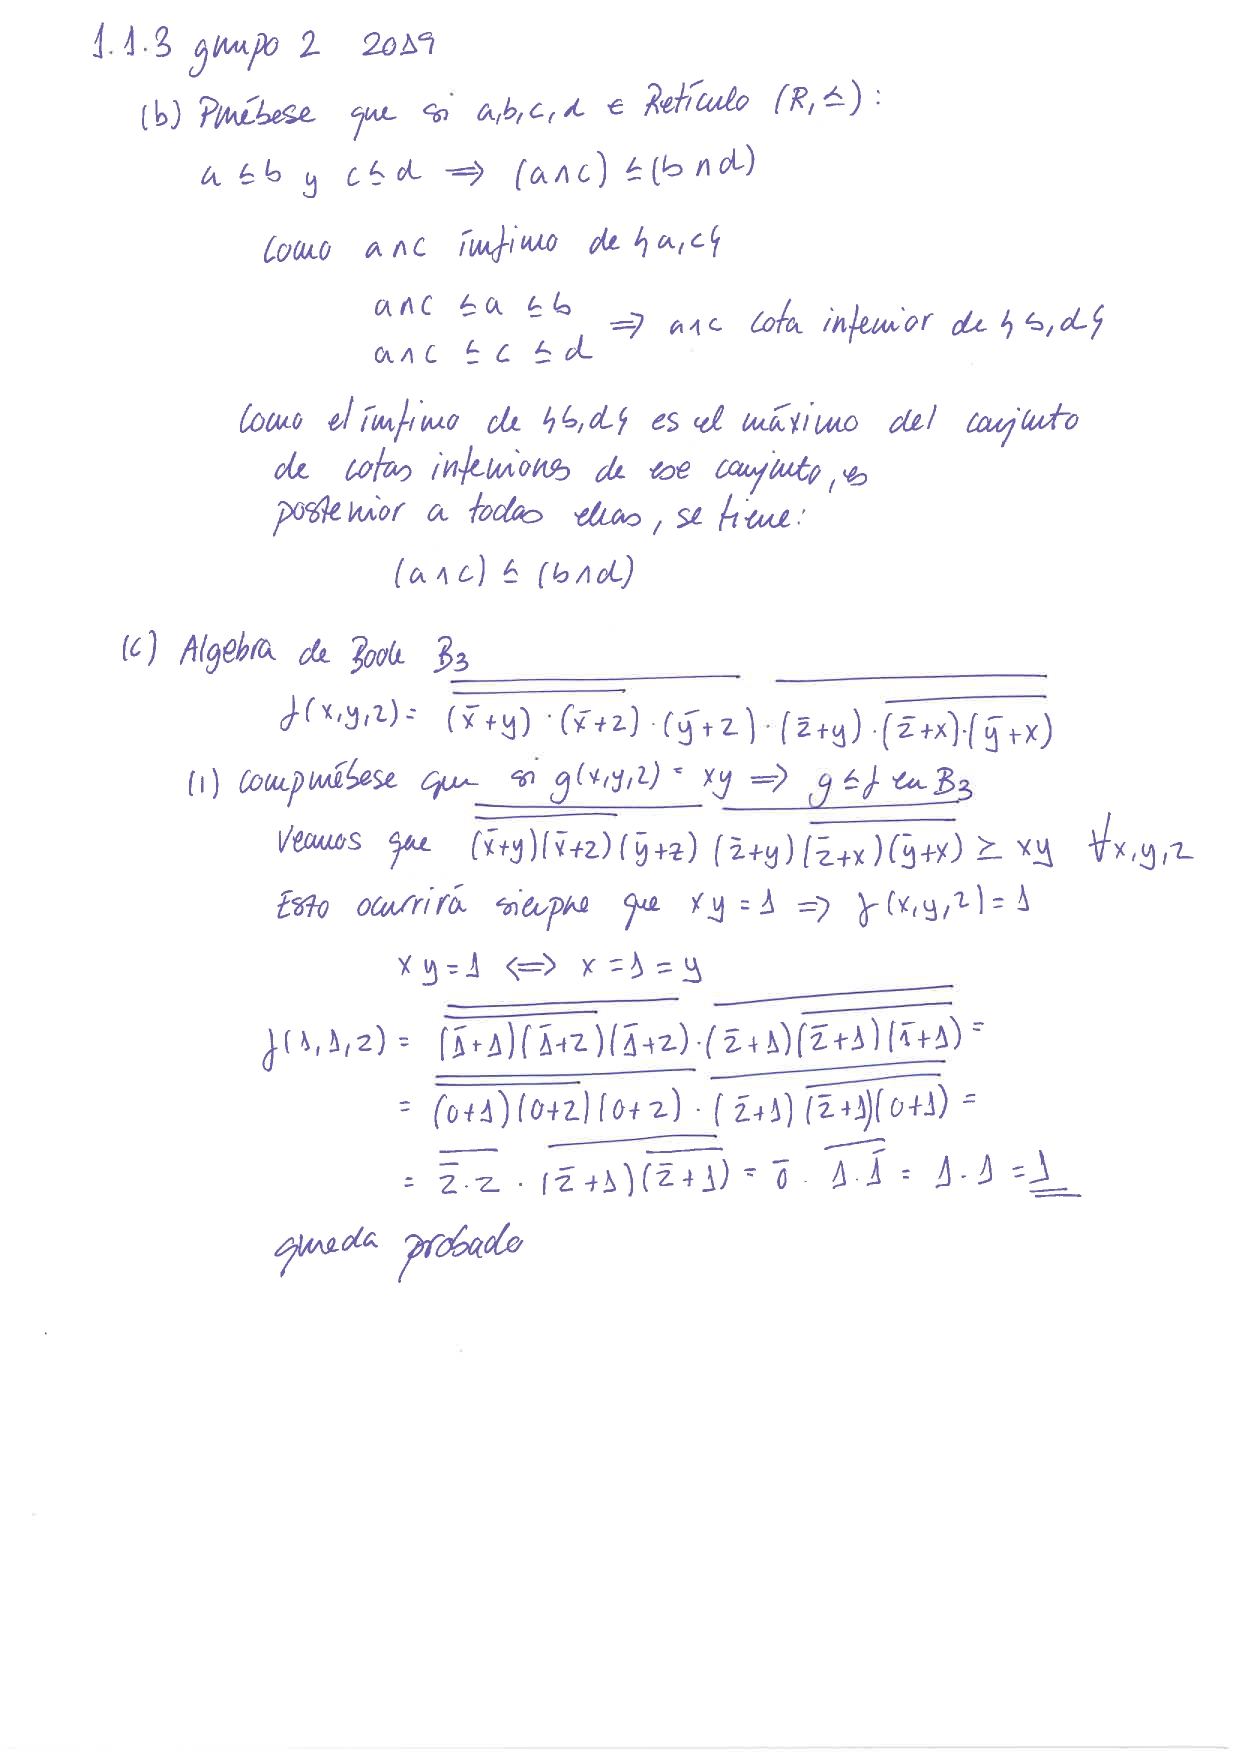 1.1.3 grupo 2 2019
(b) Pruébese que si a,b,c,d ∈ Retículo (R,≤):
a ≤ b y c ≤ d ⟹ (a∧c) ≤ (b∧d)
Como a∧c ínfimo de {a,c}
a∧c ≤ a ≤ b
⟹ a∧c cota inferior de {b,d}
a∧c ≤ c ≤ d
Como el ínfimo de {b,d} es el máximo del conjunto
de cotas inferiores de ese conjunto, es
posterior a todas ellas, se tiene:
(a∧c) ≤ (b∧d)
(c) Algebra de Boole B₃
f(x,y,z) = \overline{\overline{(x̄+y)·(x̄+z)}·(ȳ+z)} · \overline{(z̄+y)·\overline{(z̄+x)·(ȳ+x)}}
(1) compruébese que si g(x,y,z) = xy ⟹ g ≤ f en B₃
Veamos que \overline{\overline{(x̄+y)(x̄+z)}(ȳ+z)} \overline{(z̄+y)\overline{(z̄+x)(ȳ+x)}} ≥ xy ∀x,y,z
Esto ocurrirá siempre que xy = 1 ⟹ f(x,y,z) = 1
xy = 1 ⟺ x = 1 = y
f(1,1,z) = \overline{\overline{(1̄+1)(1̄+z)}(1̄+z)} · \overline{(z̄+1)\overline{(z̄+1)(1̄+1)}} =
= \overline{\overline{(0+1)(0+z)}(0+z)} · \overline{(z̄+1)\overline{(z̄+1)(0+1)}} =
= \overline{z̄·z} · \overline{(z̄+1)\overline{(z̄+1)}} = 0̄ · \overline{1·1̄} = 1·1 = 1
queda probado